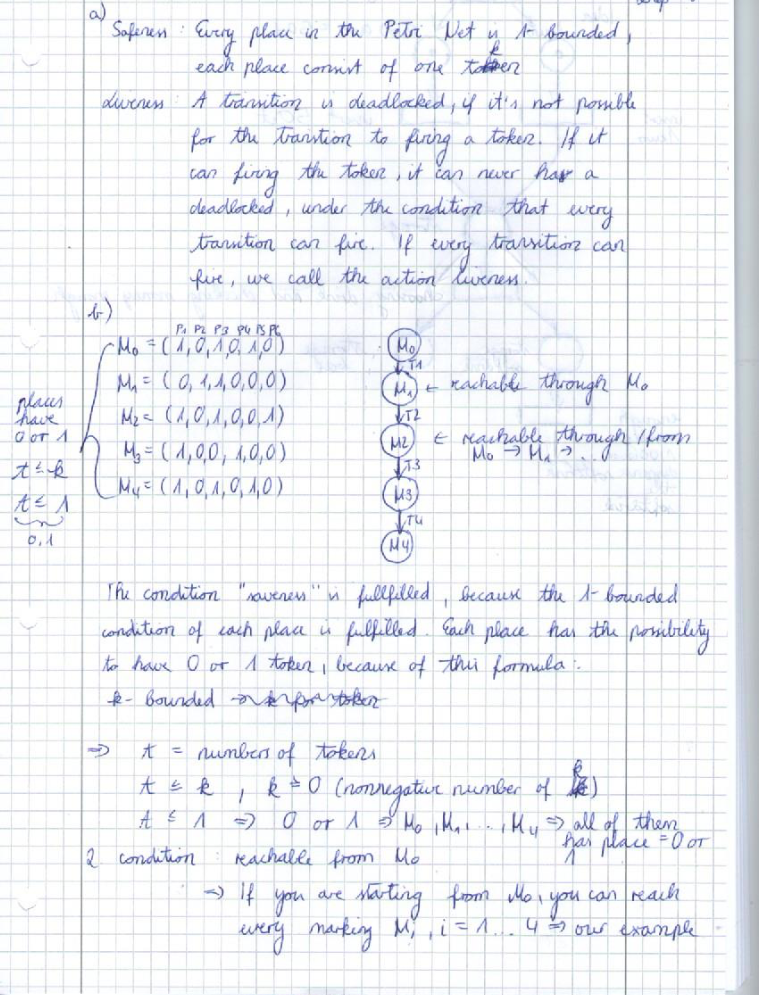 a)
Safeness : Every place in the Petri Net is 1-bounded,
each place consist of one token
Liveness : A transition is deadlocked, if it's not possible
for the transtion to firing a token. If it
can firing the token, it can never have a
deadlocked, under the condition that every
transition can fire. If every transition can
fire, we call the action liveness.
b)
P1 P2 P3 P4 P5 P6
M0 = (1,0,1,0,1,0)
M1 = (0,1,1,0,0,0)
M2 = (1,0,1,0,0,1)
M3 = (1,0,0,1,0,0)
M4 = (1,0,1,0,1,0)
places
have
0 or 1
t ≤ k
t ≤ 1
0,1
M0
T1
M1 ← reachable through M0
T2
M2 ← reachable through / from
M0 → M1 → ...
T3
M3
T4
M4
The condition "saveness" is fullfilled, because the 1-bounded
condition of each place is fulfilled. Each place has the possibility
to have 0 or 1 token, because of this formula:
k- bounded
⇒ t = numbers of tokens
t ≤ k , k ≥ 0 (nonnegative number of k)
t ≤ 1 ⇒ 0 or 1 ⇒ M0, M1, ..., M4 ⇒ all of them
has place = 0 or
1
2 condition : reachable from M0
⇒ If you are starting from M0, you can reach
every marking Mi, i = 1 ... 4 ⇒ our example